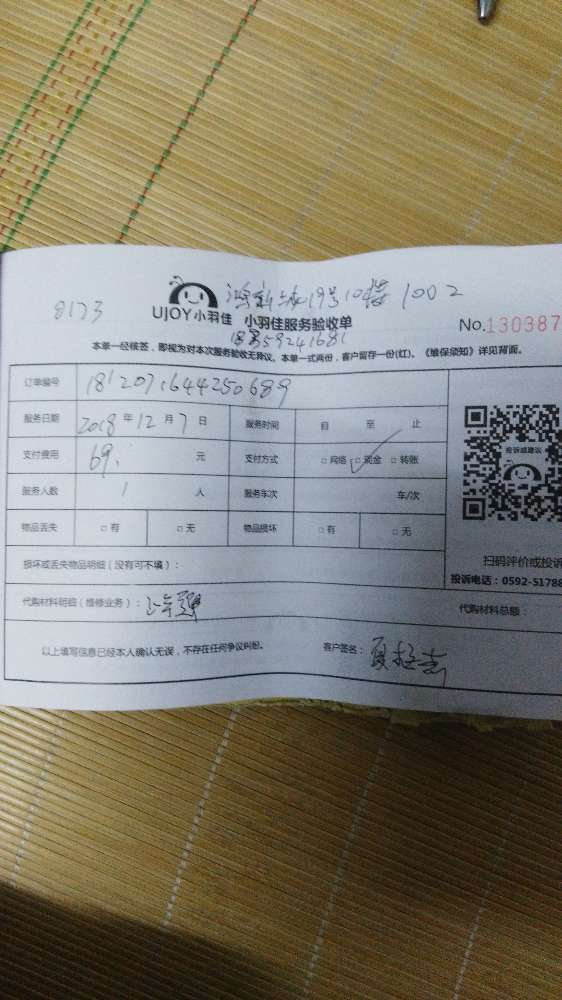 8173 19号10楼 1002
UJOY小羽佳 小羽佳服务验收单 No.130387
本单一经核签，即视为对本次服务验收无异议。本单一式两份，客户留存一份(红)。《维保须知》详见背面。
订单编号 1812071644250689
服务日期 2018 年 12 月 7 日 服务时间 自 至 止
支付费用 69. 元 支付方式 □网络 □现金 □转账
服务人数 1 人 服务车次 车/次
物品丢失 □有 □无 物品损坏 □有 □无
投诉或建议
损坏或丢失物品明细（没有可不填）：
扫码评价或投诉
投诉电话：0592-51788
代购材料明细（维修业务）： 代购材料总额：
以上填写信息已经本人确认无误，不存在任何争议纠纷。 客户签名：